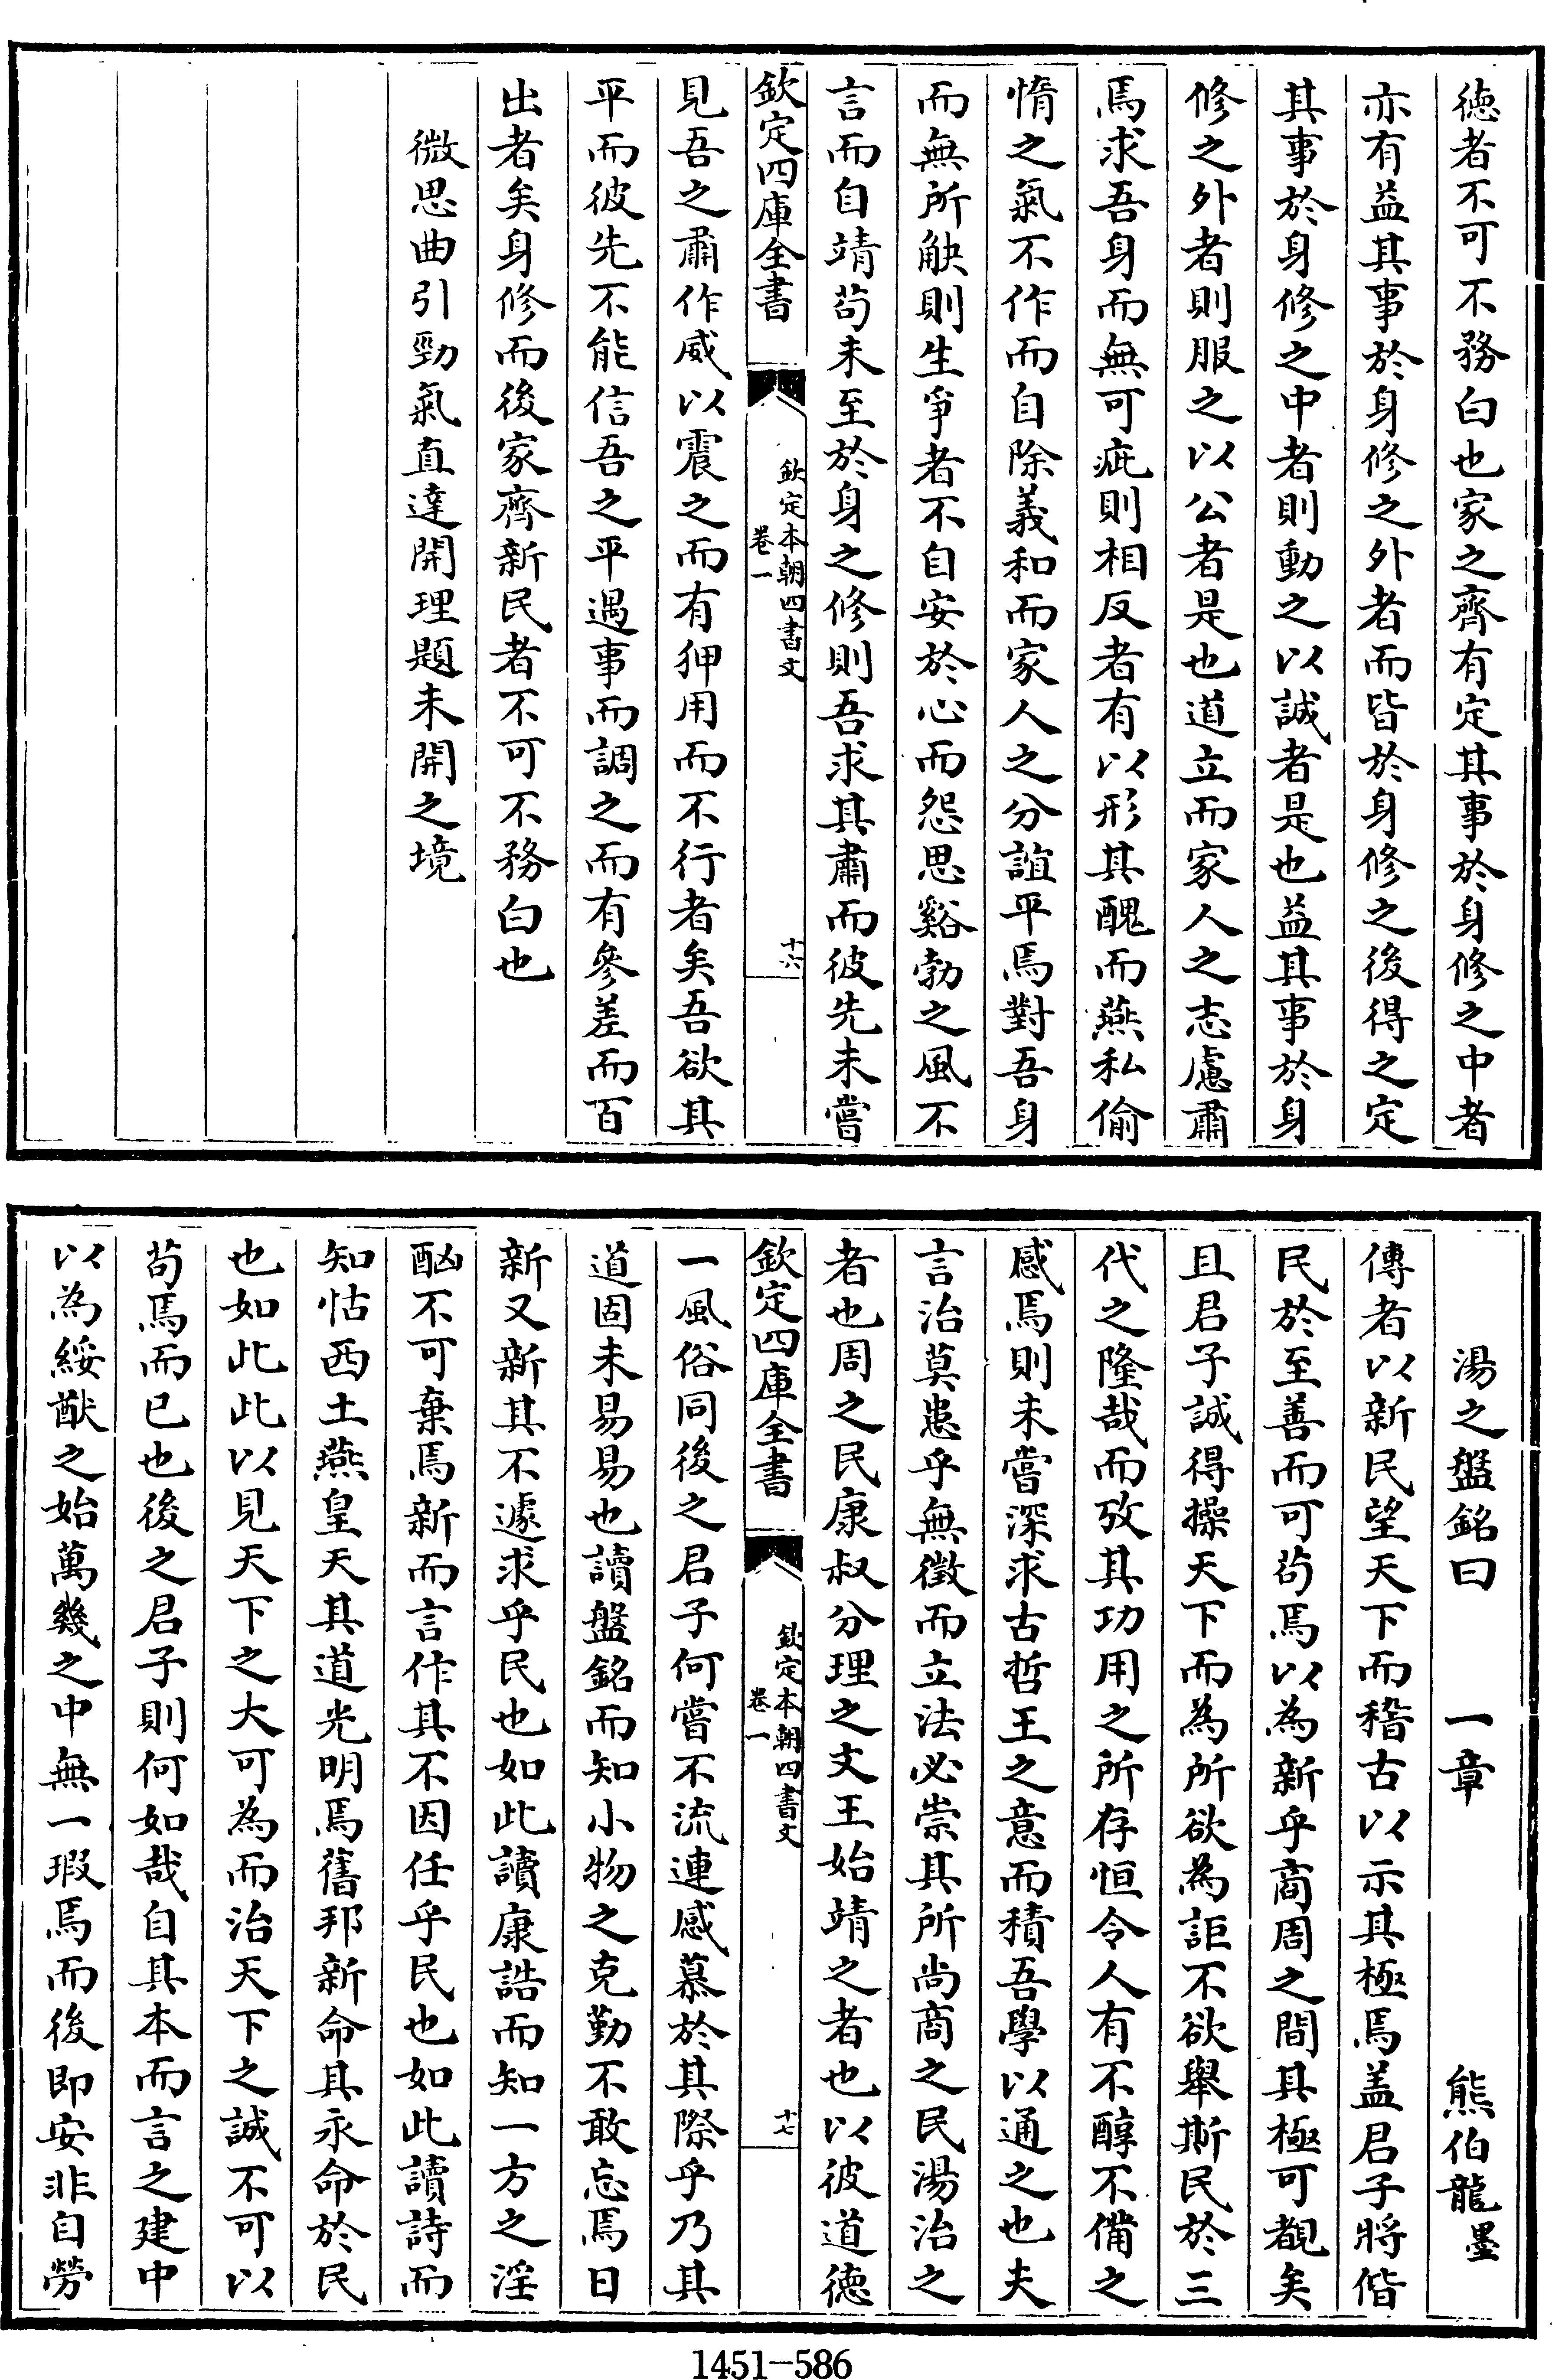 徳者不可不務白也家之齊有定其事於身修之中者
亦有益其事於身修之外者而皆於身修之後得之定
其事於身修之中者則動之以誠者是也益其事於身
修之外者則服之以公者是也道立而家人之志慮肅
焉求吾身而無可疵則相反者有以形其醜而燕私偷
惰之氣不作而自除義和而家人之分誼平焉對吾身
而無所觖則生爭者不自安於心而怨思谿勃之風不
言而自靖茍未至於身之修則吾求其肅而彼先未嘗
欽定四庫全書
欽定本朝四書文
卷一
十六
見吾之肅作威以震之而有狎用而不行者矣吾欲其
平而彼先不能信吾之平遇事而調之而有參差而百
出者矣身修而後家齊新民者不可不務白也
微思曲引勁氣直達開理題未開之境
湯之盤銘曰 一章 熊伯龍墨
傳者以新民望天下而稽古以示其極焉盖君子將偕
民於至善而可茍焉以為新乎商周之間其極可覩矣
且君子誠得操天下而為所欲為詎不欲舉斯民於三
代之隆哉而攷其功用之所存恒令人有不醇不備之
感焉則未嘗深求古哲王之意而積吾學以通之也夫
言治莫患乎無徵而立法必崇其所尚商之民湯治之
者也周之民康叔分理之文王始靖之者也以彼道徳
欽定四庫全書
欽定本朝四書文
卷一
十七
一風俗同後之君子何嘗不流連感慕於其際乎乃其
道固未易易也讀盤銘而知小物之克勤不敢忘焉日
新又新其不遽求乎民也如此讀康誥而知一方之淫
酗不可棄焉新而言作其不因任乎民也如此讀詩而
知怙西土燕皇天其道光明焉舊邦新命其永命於民
也如此此以見天下之大可為而治天下之誠不可以
茍焉而已也後之君子則何如哉自其本而言之建中
以為綏猷之始萬幾之中無一瑕焉而後即安非自勞
1451-586